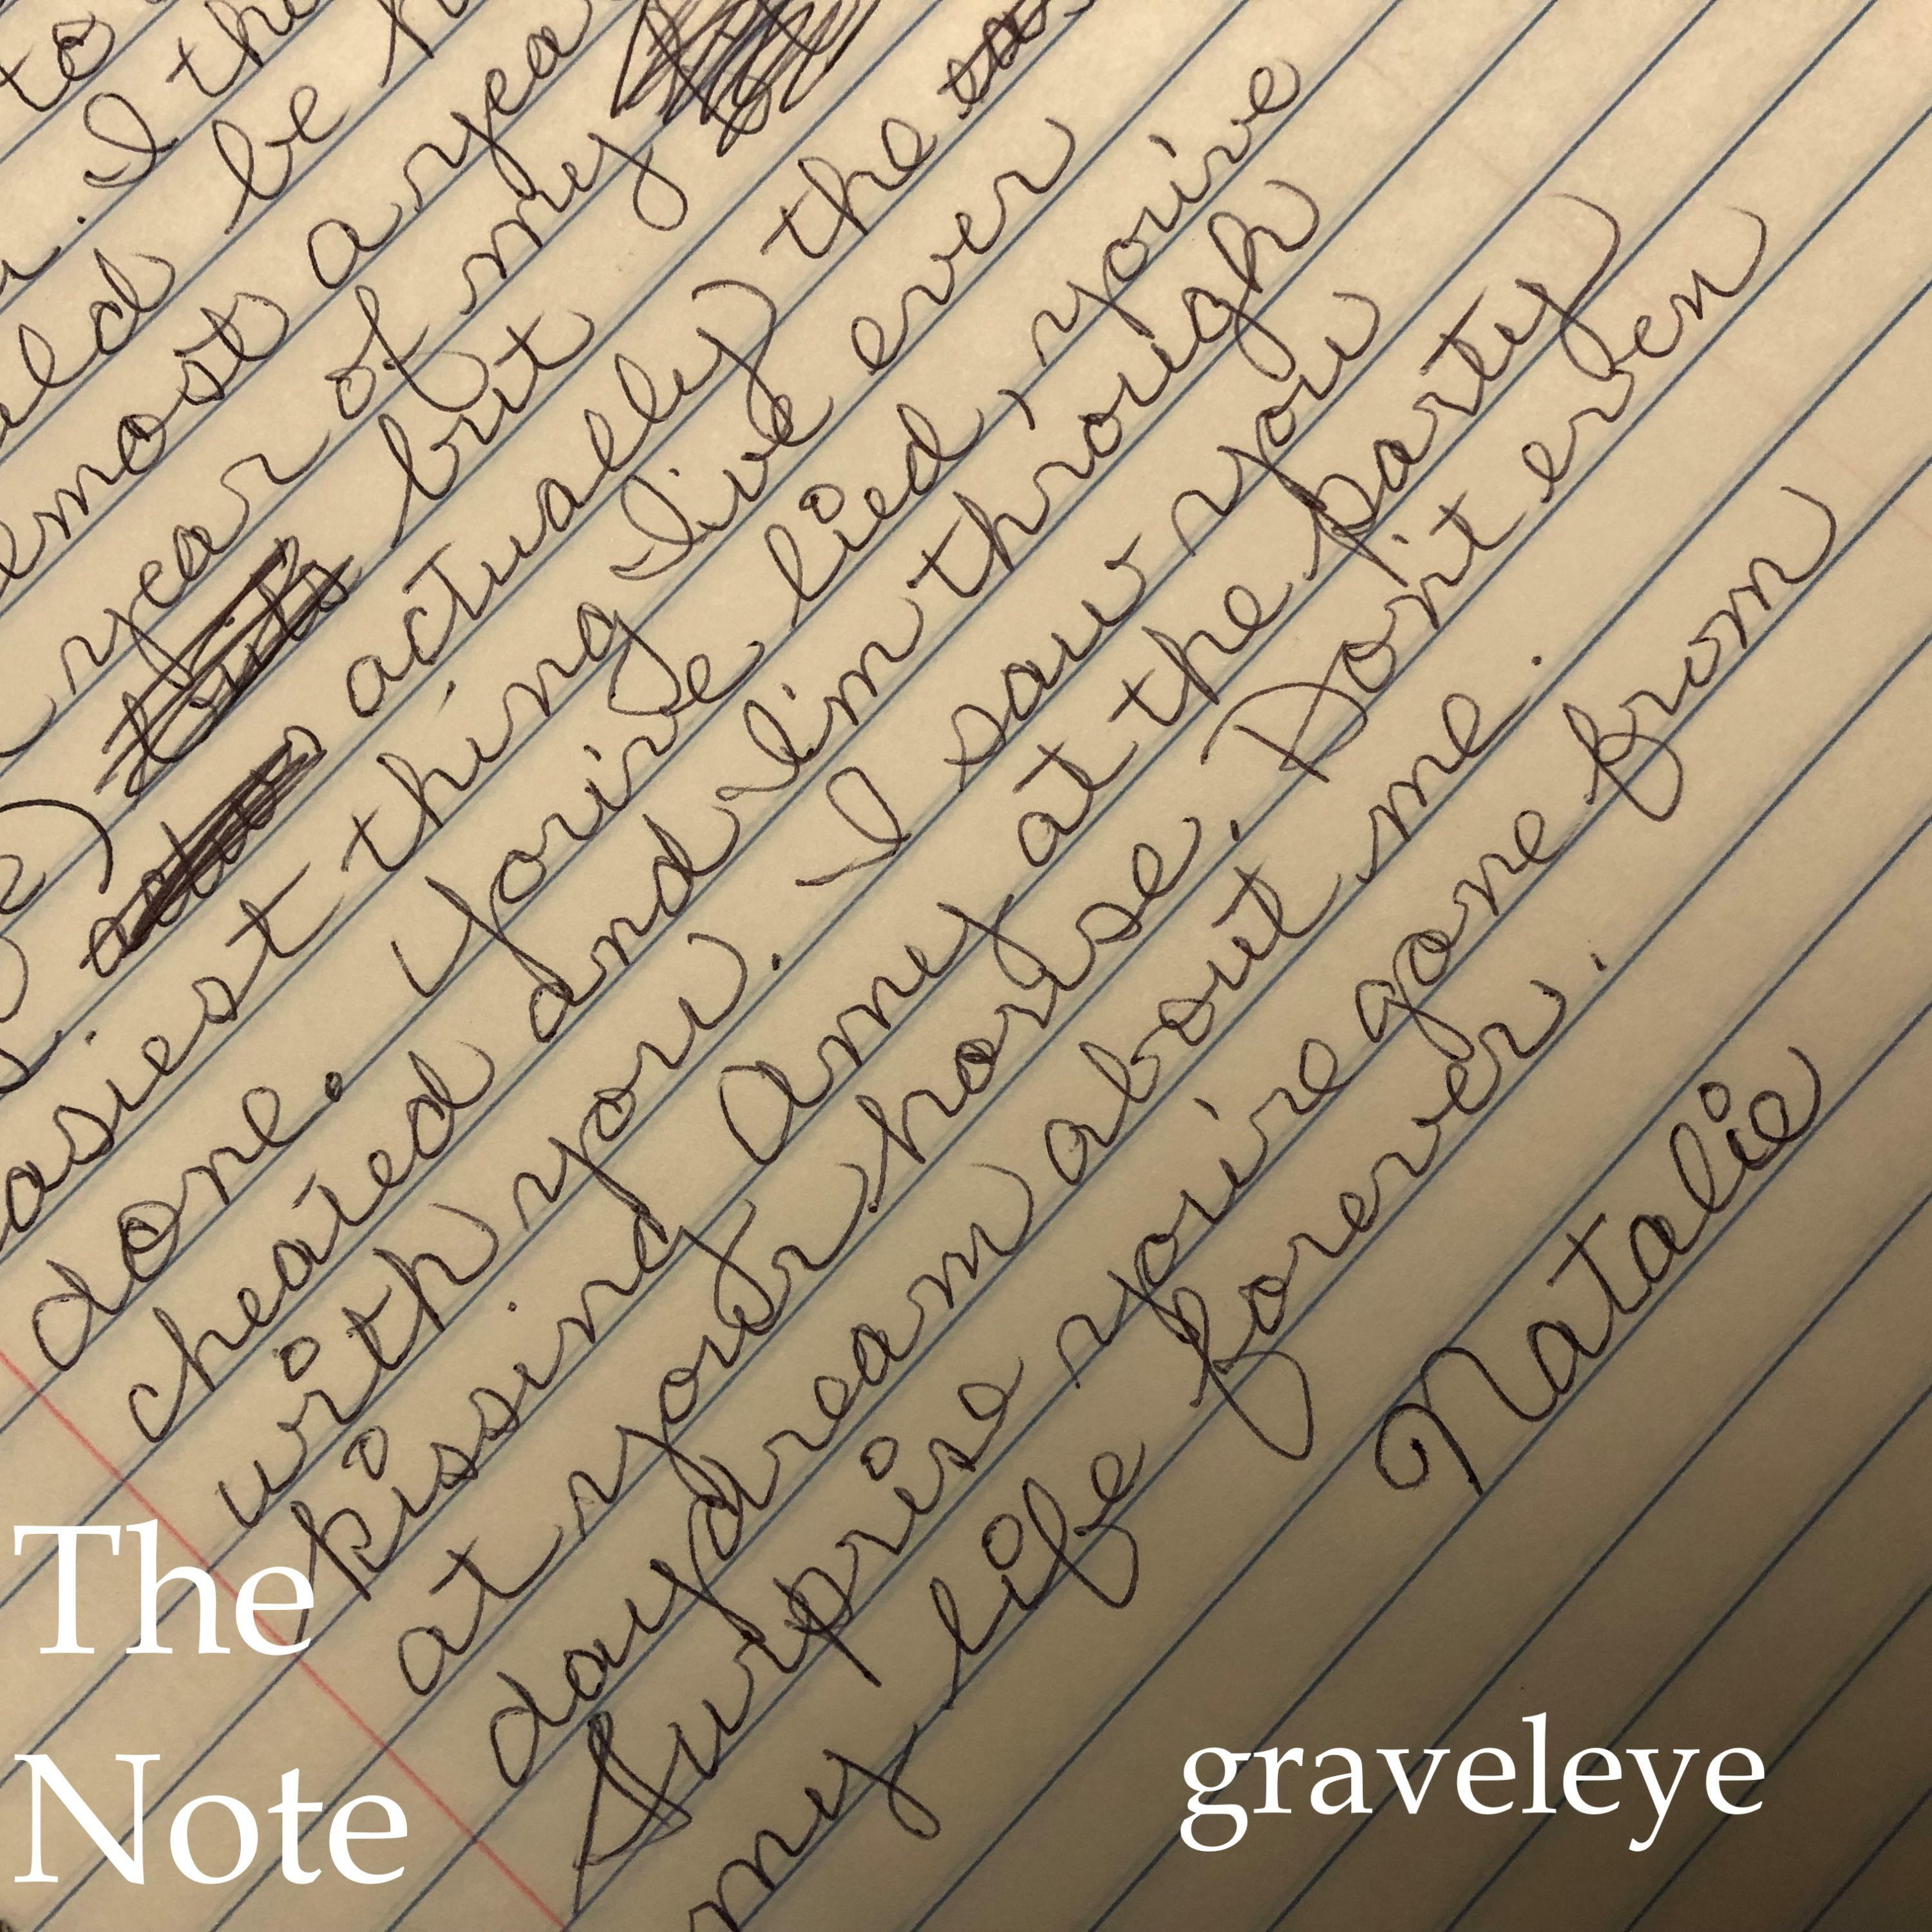 to
. I the
be
most a yea
year of my
but
actually the
asiest thing I've ever
done. You've lied, you've
cheated and I'm through
with you. I saw you
kissing Amy at the party
at your house. Don't even
daydream about me.
Surprise you're gone from
my life forever.
Natalie
The
Note
graveleye